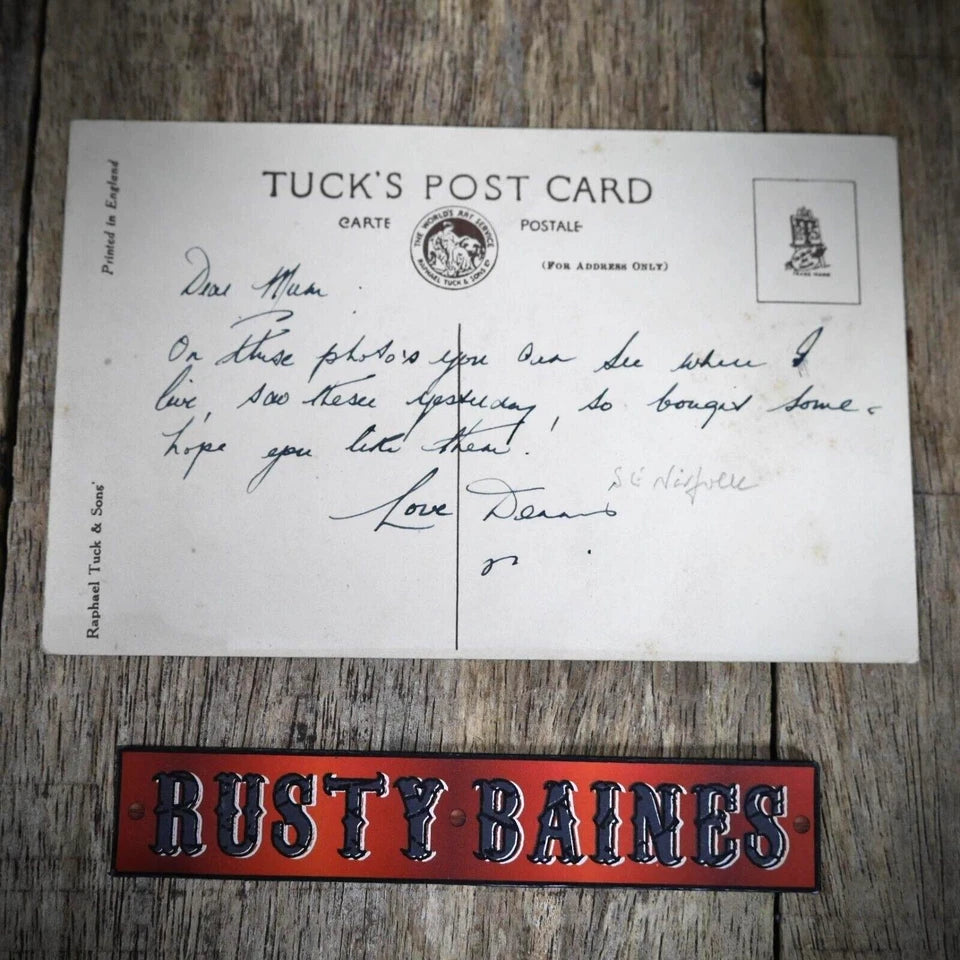 Printed in England
TUCK'S POST CARD
CARTE POSTALE
THE WORLD'S ART SERVICE
RAPHAEL TUCK & SONS LD
(FOR ADDRESS ONLY)
TRADE MARK
Dear Mum
On these photo's you can see where I
live, saw these yesterday, so bought some-
hope you like them.
Love Dennis
Raphael Tuck & Sons'
RUSTY BAINES